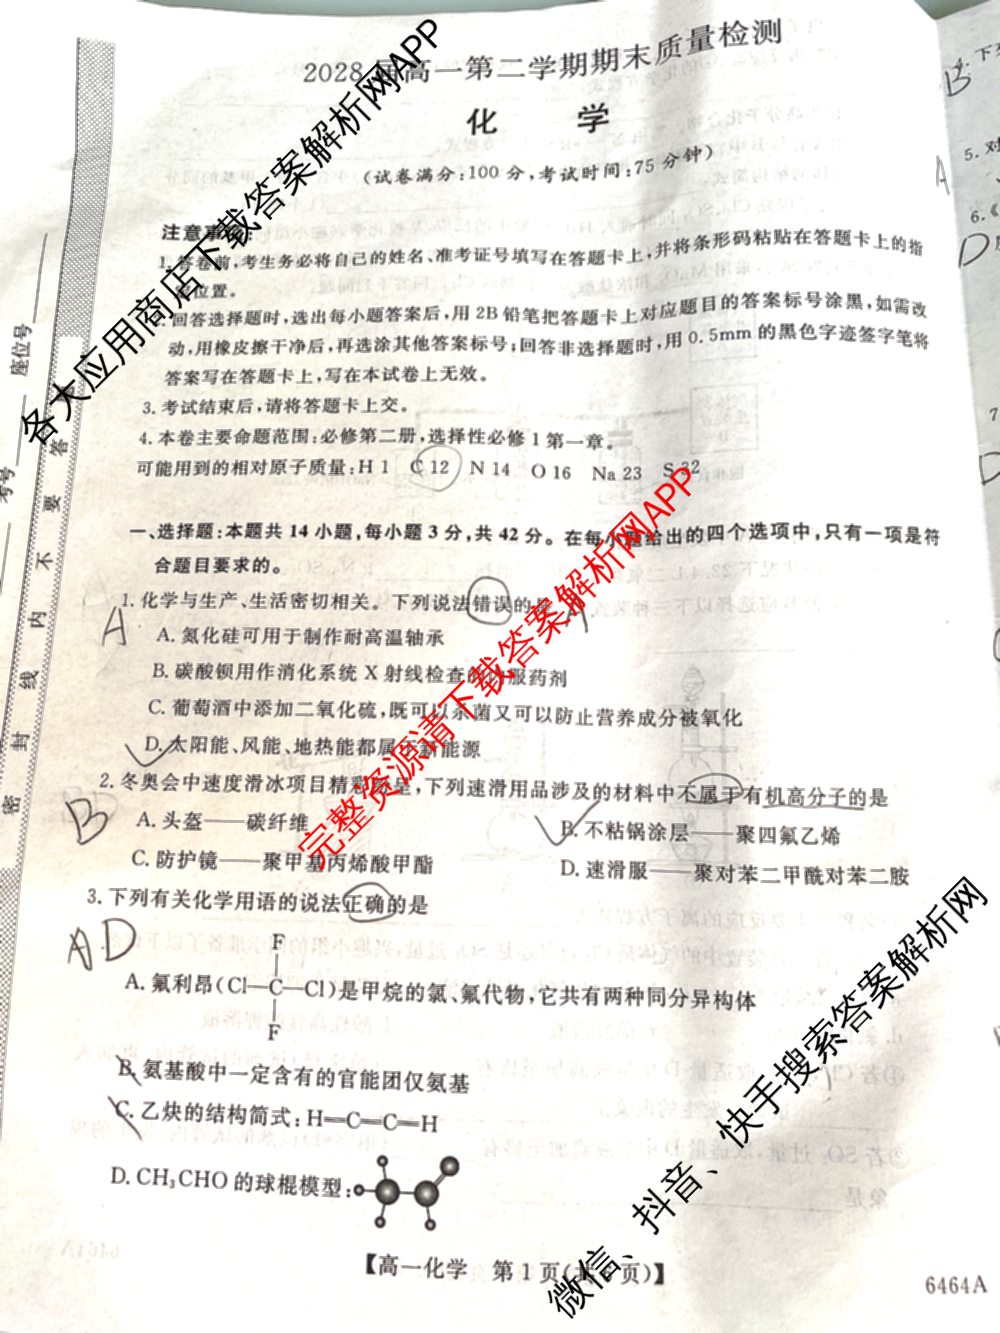 2028届高一第二学期期末质量检测
化 学
(试卷满分:100分,考试时间:75分钟)
注意事项:
1.答卷前,考生务必将自己的姓名、准考证号填写在答题卡上,并将条形码粘贴在答题卡上的指
定位置。
2.回答选择题时,选出每小题答案后,用2B铅笔把答题卡上对应题目的答案标号涂黑,如需改
动,用橡皮擦干净后,再选涂其他答案标号;回答非选择题时,用0.5mm的黑色字迹签字笔将
答案写在答题卡上,写在本试卷上无效。
3.考试结束后,请将答题卡上交。
4.本卷主要命题范围:必修第二册,选择性必修1第一章。
可能用到的相对原子质量:H 1 C 12 N 14 O 16 Na 23 S 32
一、选择题:本题共14小题,每小题3分,共42分。在每小题给出的四个选项中,只有一项是符
合题目要求的。
1.化学与生产、生活密切相关。下列说法错误的是
A
A.氮化硅可用于制作耐高温轴承
B.碳酸钡用作消化系统X射线检查的内服药剂
C.葡萄酒中添加二氧化硫,既可以杀菌又可以防止营养成分被氧化
D.太阳能、风能、地热能都属于新能源
2.冬奥会中速度滑冰项目精彩纷呈,下列速滑用品涉及的材料中不属于有机高分子的是
B
A.头盔——碳纤维
B.不粘锅涂层——聚四氟乙烯
C.防护镜——聚甲基丙烯酸甲酯
D.速滑服——聚对苯二甲酰对苯二胺
3.下列有关化学用语的说法正确的是
AD
F
A.氟利昂(Cl—C—Cl)是甲烷的氯、氟代物,它共有两种同分异构体
F
B.氨基酸中一定含有的官能团仅氨基
C.乙炔的结构简式:H—C—C—H
D.CH₃CHO的球棍模型:
【高一化学 第1页(共6页)】
6464A
座位号
考号
密 封 线 内 不 要 答
4.下列
B
5.对
A
6.《
D
7
D
各大应用商店下载答案解析网APP
完整资源请下载答案解析网APP
微信、抖音、快手搜索答案解析网